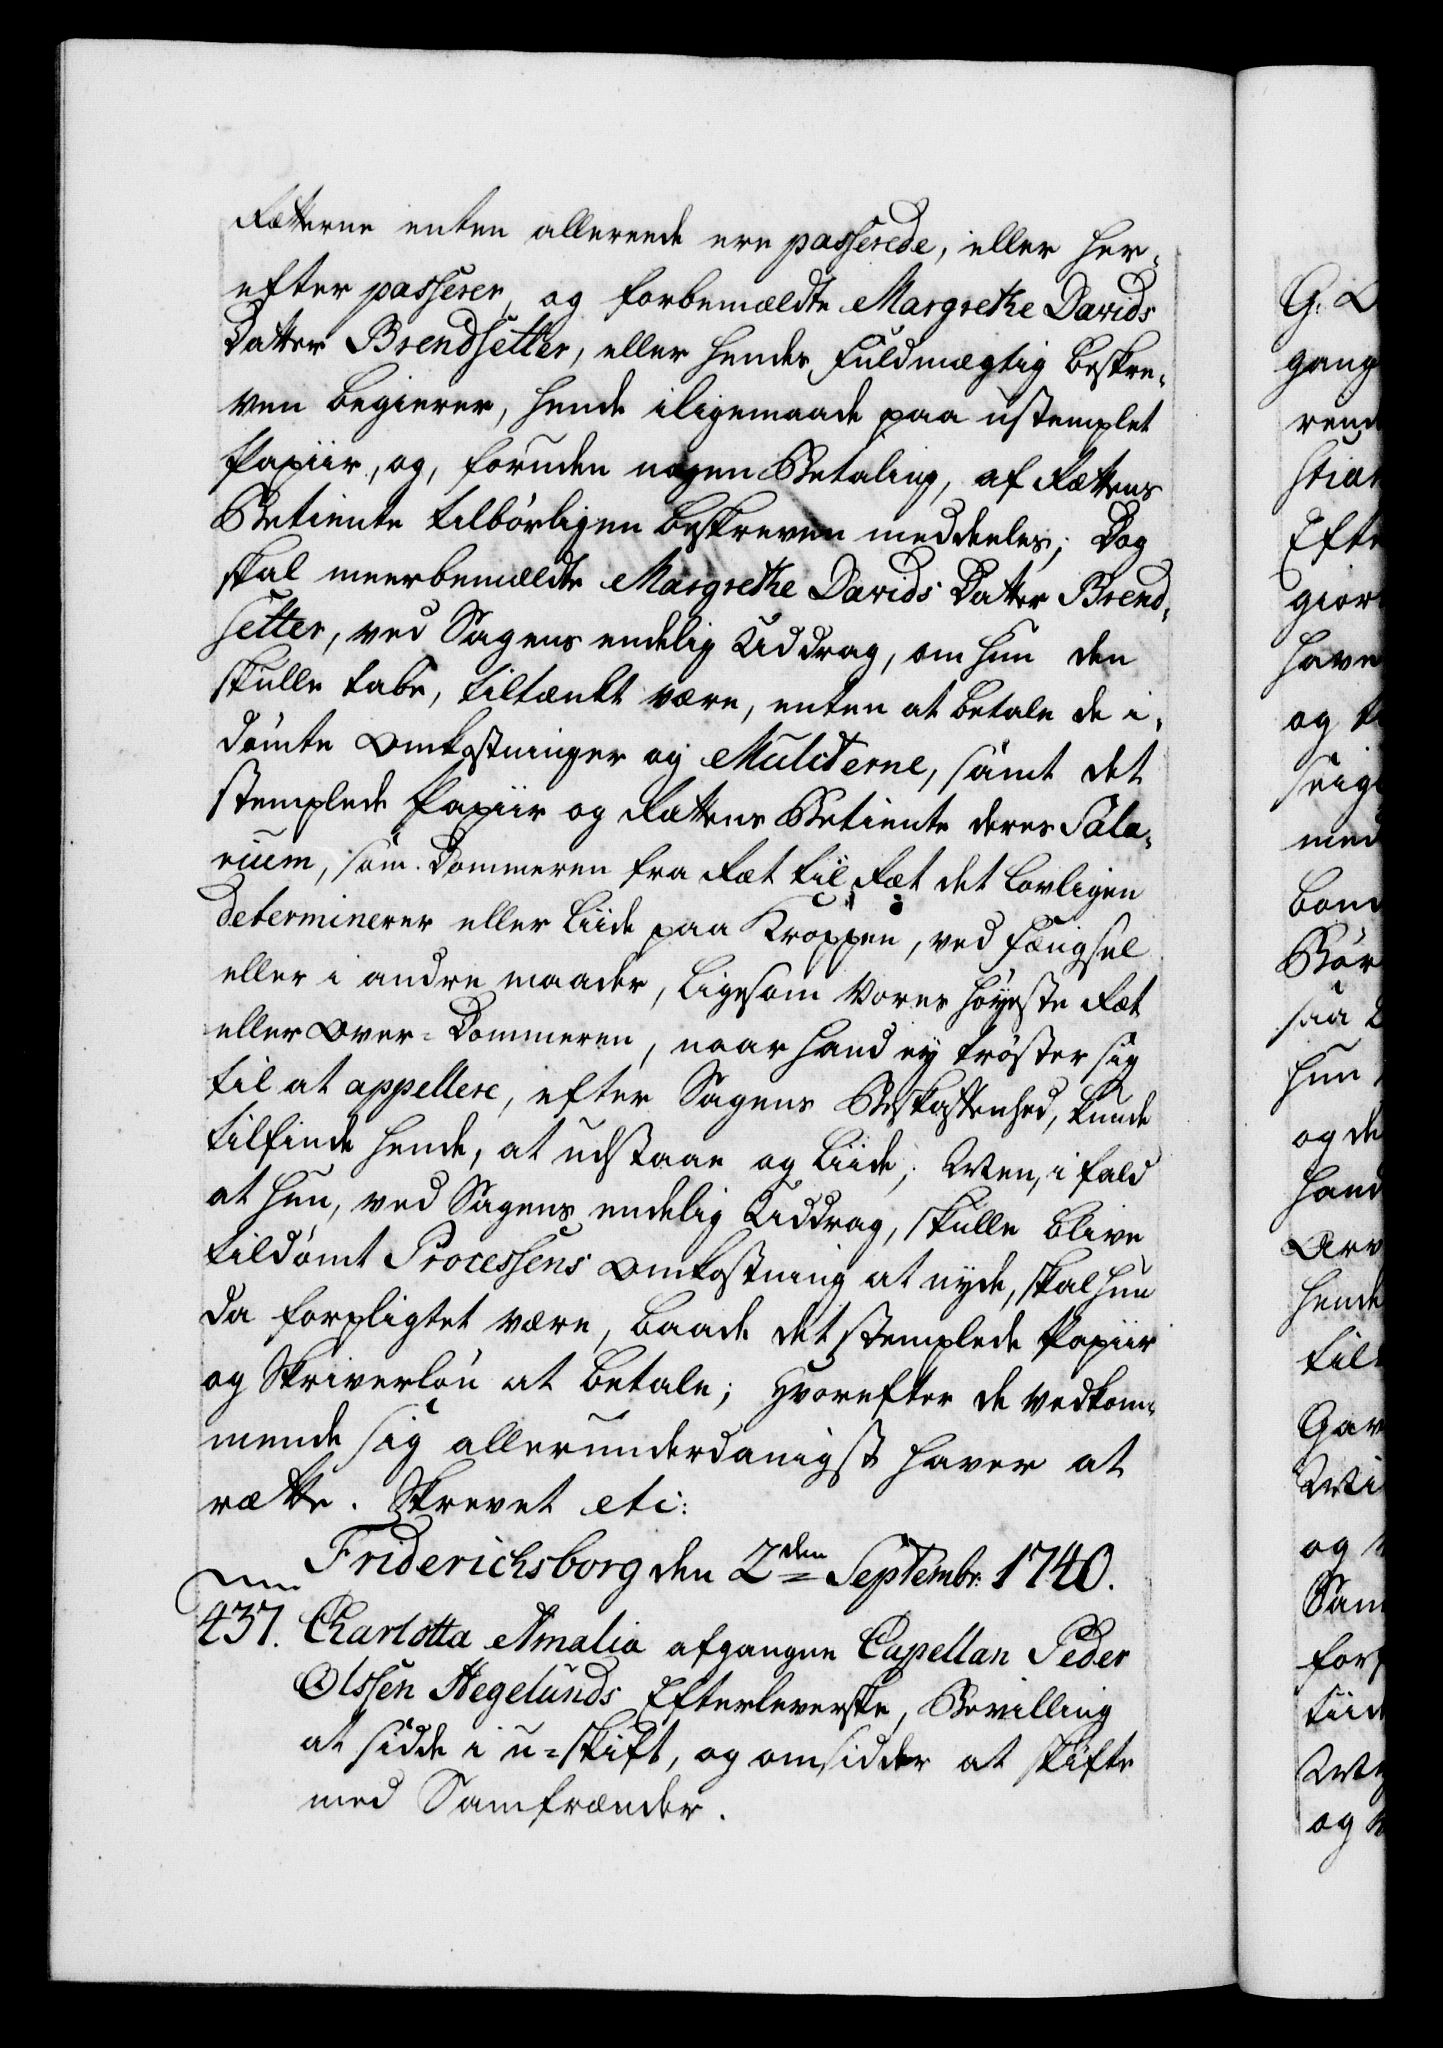 Rætterne enten allereede ere passerede, eller her-
efter passerer, og forbemældte Margrethe Davids
Datter Brendsetter, eller hendes Fuldmægtig beskre-
ven begierer, hende iligemaade paa ustemplet
Papiir, og, foruden nogen Betaling, af Rættens
Betiente tilbørligen beskreven meddeeles; Dog
skal meerbemældte Margrethe Davids Datter Brend-
setter, ved Sagens endelig Uddrag, om hun den
skulle tabe, tiltænkt være, enten at betale de i-
dømte Omkostninger og Mulcterne, samt det
stemplede Papiir og Rættens Betiente deres Sala-
rium, som Dommeren fra Ræt til Ræt det lovligen
determinerer eller liide paa Kroppen, ved Fængsel
eller i andre maader, ligesom Vores høyeste Ræt
eller Over-Dommeren, naar hand ey trøster sig
til at appellere, efter Sagens Beskaffenhed, kunde
tilfinde hende, at udstaae og liide; Men, i fald
at hun, ved Sagens endelig Uddrag, skulle blive
tildømt Processens Omkostning at nyde, skal hun
da forpligtet være, baade det stemplede Papiir
og Skriverløn at betale; Hvorefter de vedkom-
mende sig allerunderdanigst haver at
rætte. Skrevet etc:
Friderichsborg den 2den Septembr: 1740.
437. Charlotta Amalia afgangne Capellan Peder
Olssen Hegelunds Efterleverske, Bevilling
at sidde i u-skift, og omsidder at skifte
med Samfrænder.
G. L
gang
rend
Efte
gior
have
og
med
bom
Bør
saa
hun
og de
hand
Arv
hende
til
Gav
og
Sam
for
tiid
og